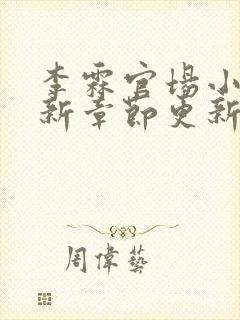 李霖官场小
新章节更新
周偉藝